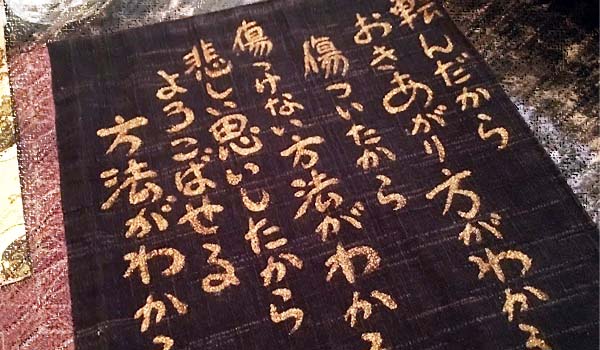 転んだから
おきあがり方がわかる
傷ついたから
傷つけない方法がわかる
悲しい思いしたから
よろこばせる
方法がわかる